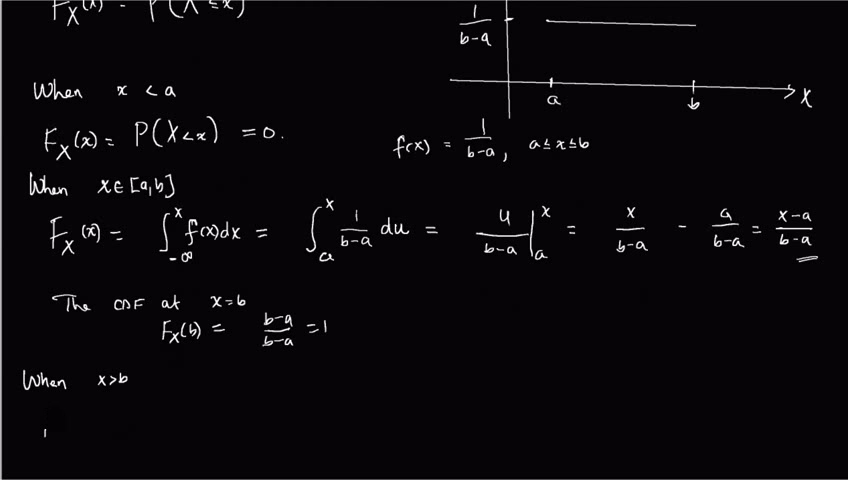 F_X(x) = P(X ≤ x)
1/(b-a)
a b X
When x < a
F_X(x) = P(X < x) = 0.
f(x) = 1/(b-a), a ≤ x ≤ b
When x ∈ [a,b]
F_X(x) = ∫_{-∞}^{x} f(x)dx = ∫_a^x 1/(b-a) du = u/(b-a) |_a^x = x/(b-a) - a/(b-a) = (x-a)/(b-a)
The CDF at x=b
F_X(b) = (b-a)/(b-a) = 1
When x>b